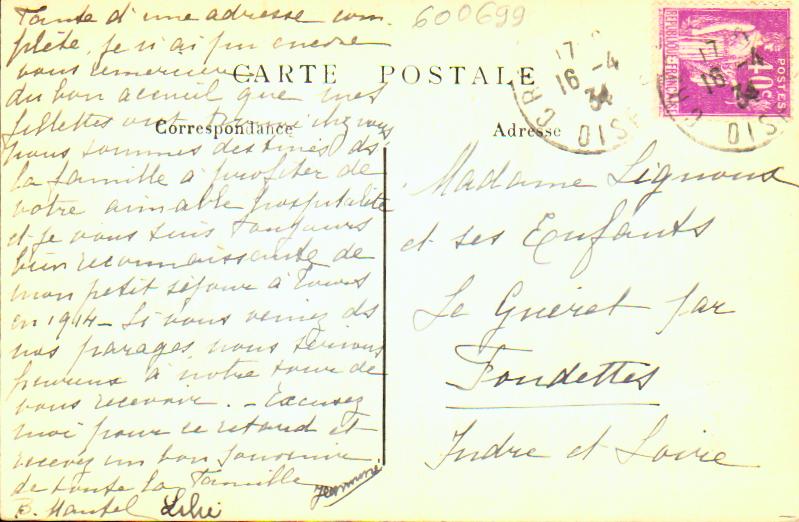 600699
CARTE POSTALE
Correspondance
Adresse
Faute d'une adresse com-
plète, je n'ai pu encore
vous remercier
du bon accueil que mes
fillettes ont chez vous
nous sommes destinés ds
la famille à profiter de
votre aimable hospitalité
et je vous suis toujours
bien reconnaissante de
mon petit séjour à Tours
en 1914 - Si vous veniez ds
nos parages, nous serions
heureux à notre tour de
vous recevoir. - Excusez
moi pour ce retard et
recevez un bon souvenir
de toute la famille
B. Mantel Lilie
Madame Lignoux
et ses Enfants
Le Guéret par
Fondettes
Indre et Loire
17
16 -4
34
REPUBLIQUE FRANÇAISE
POSTES
40c
17
16 -4
34